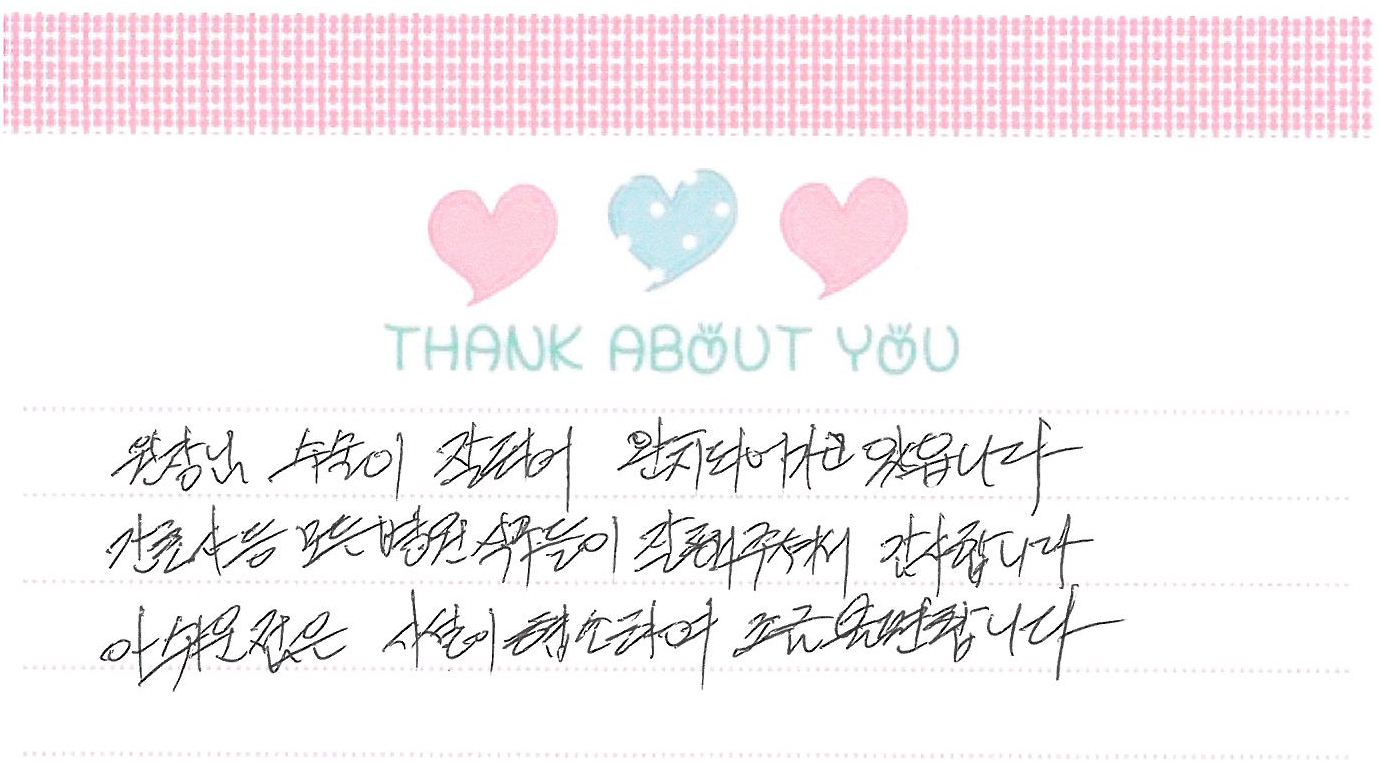 THANK ABOUT YOU
원장님 수술이 잘되어 완치되어가고 있읍니다
간호사등 모든 병원식구들이 잘해주셔서 감사합니다
아쉬운점은 시설이 협소하여 조금 불편합니다